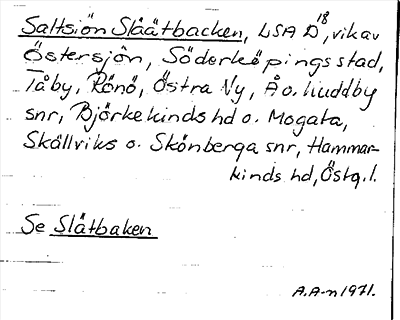 Saltsiön Slåätbacken, LSA D18, vik av
Östersjön, Söderköpings stad,
Tåby, Rönö, Östra Ny, Å o. Kuddby
snr, Björkekinds hd o. Mogata,
Skällviks o. Skönberga snr, Hammar-
kinds hd, Östg. l.
Se Slätbaken
A.A-n 1971.